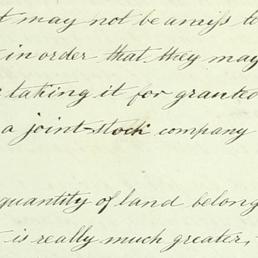 t may not be amiss to
in order that they may
taking it for granted
a joint-stock company
quantity of land belong
is really much greater,